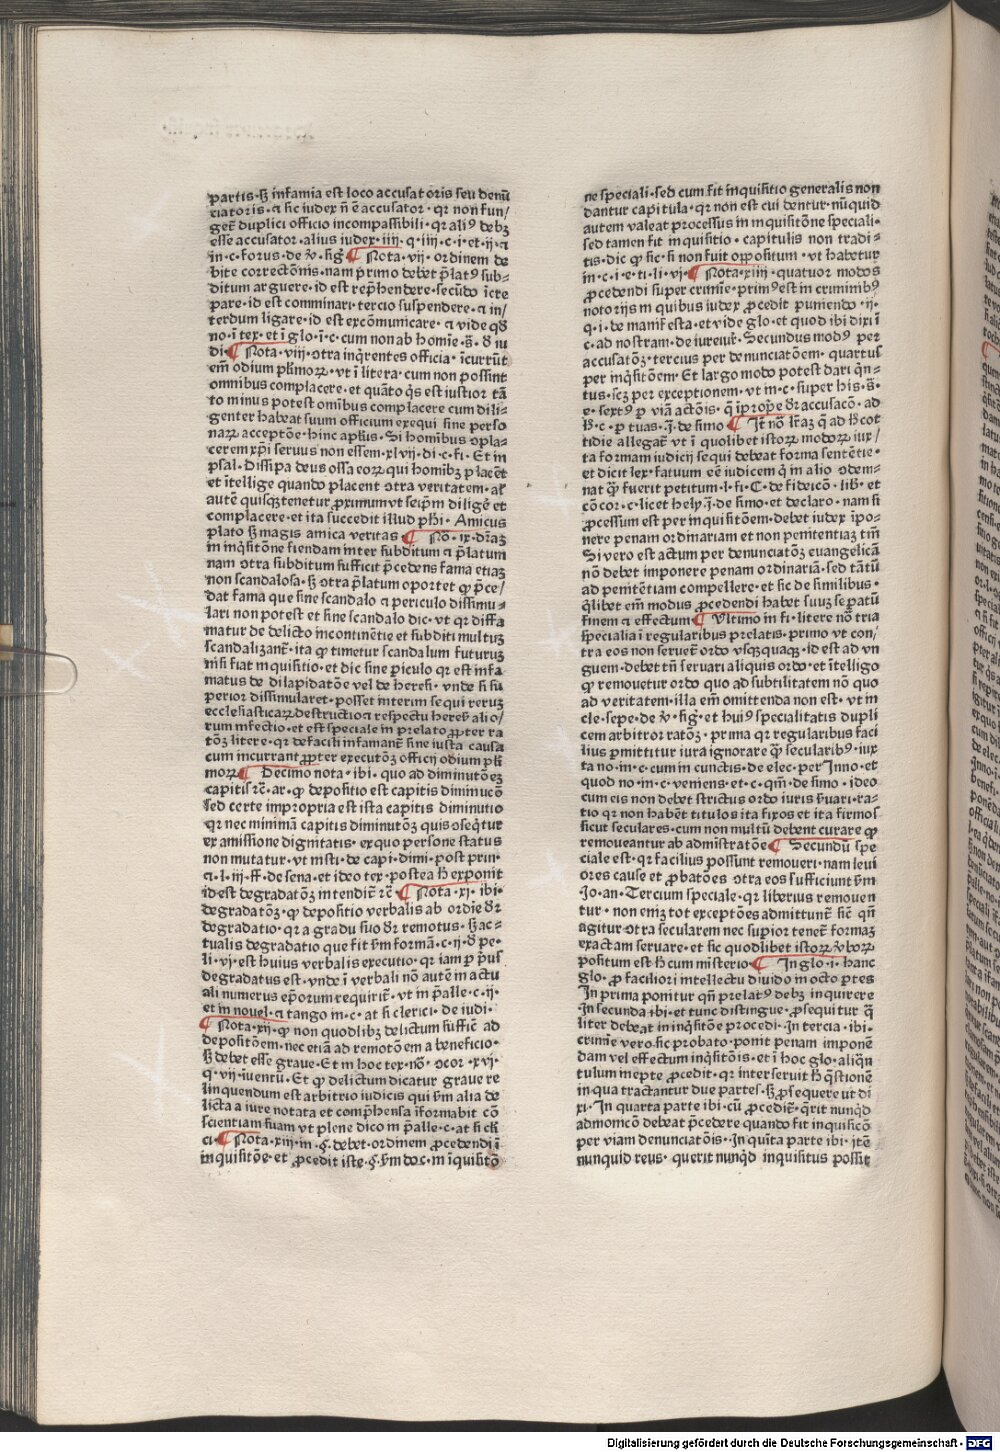 partis·sꝫ infamia est loco accusatoris seu denū
ciatoris·⁊ sic iudex n̄ ē accusator·qꝛ non fun/
get᷑ duplici officio incompassibili·qꝛ aliꝰ debꝫ
esse accusator·alius iudex·iiij·q·iiij·c·i·et·ij·⁊
in·c·forus·de ꝟ·sigꝰ ¶ Nota·vij·ordinem de
bite correctōnis·nam primo debet p̄latꝰ sub⸗
ditum arguere·id est rep̄hendere·secūdo īcre
pare·id est comminari·tercio suspendere·⁊ in/
terdum ligare·id est excōmunicare·⁊ vide qd̓
no·ī tex·et ī glo·ī·c·cum non ab homīe·s̄·d̓ iu
di ¶ Nota·viij·ꝯtra inq̄rentes officia·īcurrūt
em̄ odium pl̓imoꝝ·vt ī litera·cum non possint
omnibus complacere·et quāto q̓s est iustior tā
to minus potest omībus complacere cum dili⸗
genter habeat suum officium exequi sine perso
naꝝ acceptōe·hinc apl̓us·Si homībus ꝯpla⸗
cerem xp̄i seruus non essem·xlvij·di·c·fi·Et in
psal·Dissipa deus ossa eoꝝ qui homibꝫ placēt
et ītellige quando placent ꝯtra veritatem·al̓
autē quisqꝫ tenetur proximum vt seip̄m diligē et
complacere·et ita succedit illud ph̓i·Amicus
plato sꝫ magis amica veritas ¶ No·ix·dr̄aꝫ
in inq̓sitōne fiendam inter subditum ⁊ p̄latum
nam ꝯtra subditum sufficit p̄cedens fama etiaꝫ
non scandalosa·sꝫ ꝯtra p̄latum oportet ꝙ p̄ce/
dat fama que sine scandalo ⁊ periculo dissimu⸗
lari non potest et sine scandalo dic·vt qꝛ diffa
matur de delicto incontinētie et subditi multuꝫ
scandalizant᷑·ita ꝙ timetur scandalum futuruꝫ
nisi fiat inquisitio·et dic sine p̱iculo qꝛ est infa
matus de dilapidatōe vel de heresi·vnde si su
perior dissimularet·posset interim sequi reruꝫ
ecclesiasticaꝝ destructio ⁊ respectu heresꝰ alio/
rum infectio·et est speciale in prelato ꝓpter ra
tōꝫ litere·qꝛ de facili infamant᷑ sine iusta causa
cum incurrant ꝓpter executōꝫ officij odium pl̓i
moꝝ ¶ Decimo nota·ibi·quo ad diminutōeꝫ
capitis rc̄·ar·ꝙ depositio est capitis diminucō
sed certe impropria est ista capitis diminutio
qꝛ nec minimā capitis diminutōꝫ quis ꝯseq̄tur
ex amissione dignitatis·exquo persone status
non mutatur·vt insti·de capi·dimi·post prin·
⁊·l·iij·ff·de sena·et ideo tex·postea h̓ exponit
id est degradatōꝫ intendit᷑ rc̄ ¶ Nota·xi·ibi·
degradatōꝫ·ꝙ depositio verbalis ab ordīe dr̄
degradatio·qꝛ a gradu suo dr̄ remotus·sꝫ ac⸗
tualis degradatio que fit s̓m formā·c·ij·d̓ pe⸗
li·vj·est huius verbalis executio·qꝛ iam p̱ p̓us
degradatus est·vnde ī verbali nō autē in actu
ali numerus ep̄orum requirit᷑·vt in p̄alle·c·ij·
et in nouel·⁊ tango in·c·at si clerici·de iudi·
¶ Nota·xij·ꝙ non quodlibꝫ delictum sufficit ad
depositōem·nec etiā ad remotōem a beneficio·
sꝫ debet esse graue·Et in hoc tex·no·ꝯcor·xvj·
q·vij·iuentū·Et ꝙ delictum dicatur graue re
linquendum est arbitrio iudicis qui s̓m alia de
licta a iure notata et comp̄hensa īformabit cō
scientiam suam vt plene dico in p̄alle·c·at si cl̓i
ci ¶ Nota·xiij·in·§·debet·ordinem ꝓcedendi ī
inquisitōe·et ꝓcedit iste·§·s̓m do·c·m īquisitō
ne speciali·sed cum fit inquisitio generalis non
dantur capitula·qꝛ non est cui dentur·nūquid
autem valeat processus in inquisitōne speciali·
sed tamen fit inquisitio·capitulis non tradi⸗
tis·dic ꝙ sic·si non fuit oppositum·vt habetur
in·c·i·e·ti·li·vj ¶ Nota·xiiij·quatuor modos
ꝓcedendi super crimīe·primꝰ est in criminibꝰ
notorijs in quibus iudex ꝓcedit puniendo·ij·
q·i·de manifesta·et vide glo·et quod ibi dixi ī
c·ad nostram·de iureiur̄·Secundus modꝰ per
accusatōꝫ·tercius per denunciatōem·quartus
per inq̓sitōem·Et largo modo potest dari q̓n⸗
tus·scꝫ per exceptionem·vt in·c·super his·s̄·
e·sextꝰ p̱ viā actōis·q̄ īprop̱e dr̄ accusacō·ad
h̓·c·p̱ tuas·j̄·de simo ¶ It̄ nō lr̄aꝫ q̄ ad h̓ cot
tidie allegat᷑ vt ī quolibet istoꝝ modoꝝ iux/
ta formam iudicij sequi debeat forma sentētie·
et dicit lex·fatuum eē iudicem q̓ in alio ꝯdem⸗
nat q̄ fuerit petitum·l·fi·C·de fideicō·lib·et
cōcor·c·licet hely·j̄·de simo·et declaro·nam si
ꝓcessum est per inquisitōem·debet iudex īpo⸗
nere penam ordinariam et non penitentiaꝫ tm̄
Si vero est actum per denunciatōꝫ euangelicā
nō debet imponere penam ordinariā·sed tātū
ad penitētiam compellere·et sic de similibus·
q̓libet em̄ modus ꝓcedendi habet suuꝫ sep̱atū
finem ⁊ effectum ¶ Vltimo in fi·litere nō tria
specialia ī regularibus prelatis·primo vt con/
tra eos non seruet᷑ ordo vsqꝫquaqꝫ·id est ad vn
guem·debet tn̄ seruari aliquis ordo·et ītelligo
ꝙ remouetur ordo quo ad subtilitatem nō quo
ad veritatem·illa em̄ omittenda non est·vt in
cle·sepe·de ꝟ·sigꝰ·et huiꝰ specialitatis dupli
cem arbitror ratōꝫ·prima qꝛ regularibus faci
lius p̱mittitur iura ignorare q̄ secularibꝰ·iux
ta no·in·c·cum in cunctis·de elec·per Inno·et
quod no·in·c·veniens·et·c·qm̄·de simo·ideo
cum eis non debet strictus ordo iuris s̓uari·ra⸗
tio qꝛ non habēt titulos ita fixos et ita firmos
sicut seculares·cum non multū debent curare ꝙ
remoueantur ab admīstratōe ¶ Secundū spe
ciale est·qꝛ facilius possunt remoueri·nam leui
ores cause et ꝓbatōes ꝯtra eos sufficiunt s̓m
Jo·an·Tercium speciale·qꝛ liberius remouen
tur·non enī ꝫ tot exceptōes admittunt᷑ sic̄ qn̄
agitur ꝯtra secularem nec supior tenet᷑ formaꝫ
exactam seruare·et sic quodlibet istoꝝ ꝟboꝝ
positum est h̓ cum misterio ¶ In glo·i·hanc
glo·ꝓ faciliori intellectu diuido in octo p̱tes
In prima ponitur qn̄ prelatꝰ debꝫ inquirere
In secunda ibi·et tunc distingue·ꝓsequitur q̄
liter debeat in inq̓sitōe procedi·In tercia·ibi·
crimīe vero·sic probato·ponit penam imponē
dam vel effectum inq̓sitōis·et ī hoc glo·aliq̄n
tulum inepte ꝓcedit·qꝛ interseruit h̓ q̄stionē
in qua tractantur due partes·sꝫ ꝓsequere vt di
xi·In quarta parte ibi·cū ꝓcedit᷑·q̄rit nunqd
admonicō debeat p̄cedere quando fit inquisicō
per viam denunciatōis·In quīta parte ibi·itē
nunquid reus·querit nunqd inquisitus possit
Digitalisierung gefördert durch die Deutsche Forschungsgemeinschaft - DFG